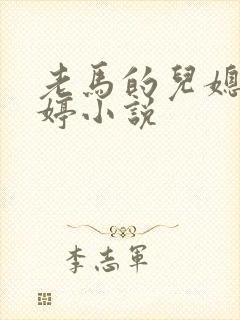 老馬的兒媳
婷小説
李志軍